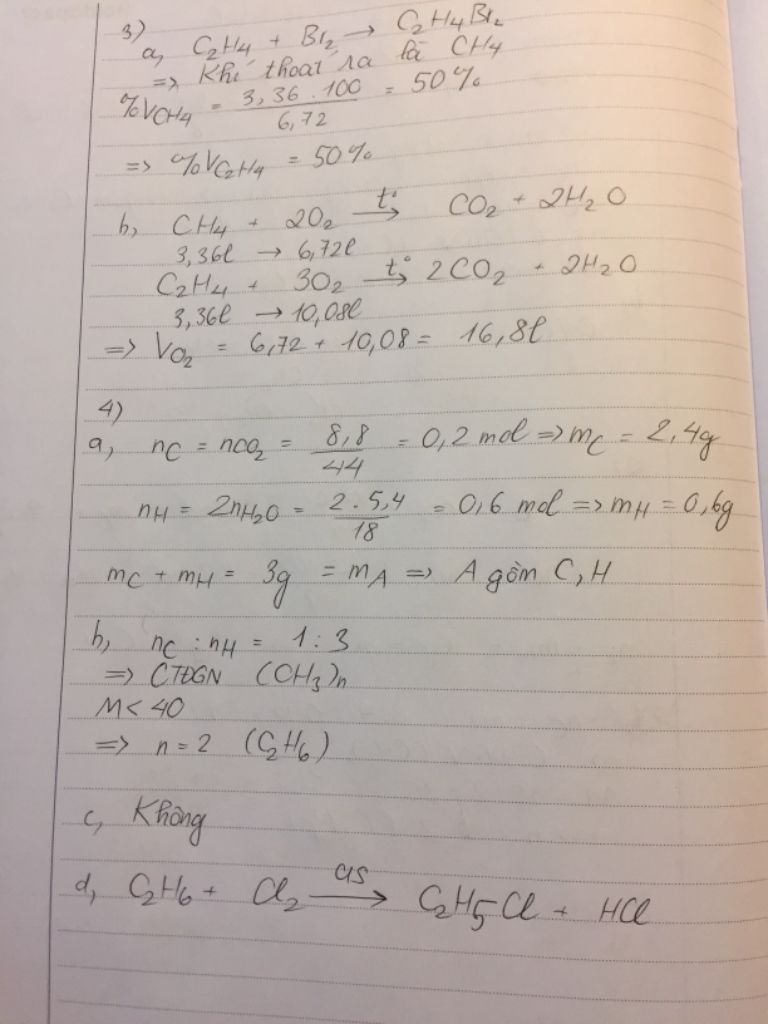 3)
a, C₂H₄ + Br₂ → C₂H₄Br₂
=> Khí thoát ra là CH₄
%V_CH₄ = 3,36 . 100 / 6,72 = 50%
=> %V_C₂H₄ = 50%
b, CH₄ + 2O₂ →(t°) CO₂ + 2H₂O
3,36l → 6,72l
C₂H₄ + 3O₂ →(t°) 2CO₂ + 2H₂O
3,36l → 10,08l
=> V_O₂ = 6,72 + 10,08 = 16,8l
4)
a, nC = nCO₂ = 8,8 / 44 = 0,2 mol => mC = 2,4g
nH = 2nH₂O = 2 . 5,4 / 18 = 0,6 mol => mH = 0,6g
mC + mH = 3g = mA => A gồm C, H
b, nC : nH = 1 : 3
=> CTĐGN (CH₃)n
M < 40
=> n = 2 (C₂H₆)
c, Không
d, C₂H₆ + Cl₂ →(as) C₂H₅Cl + HCl